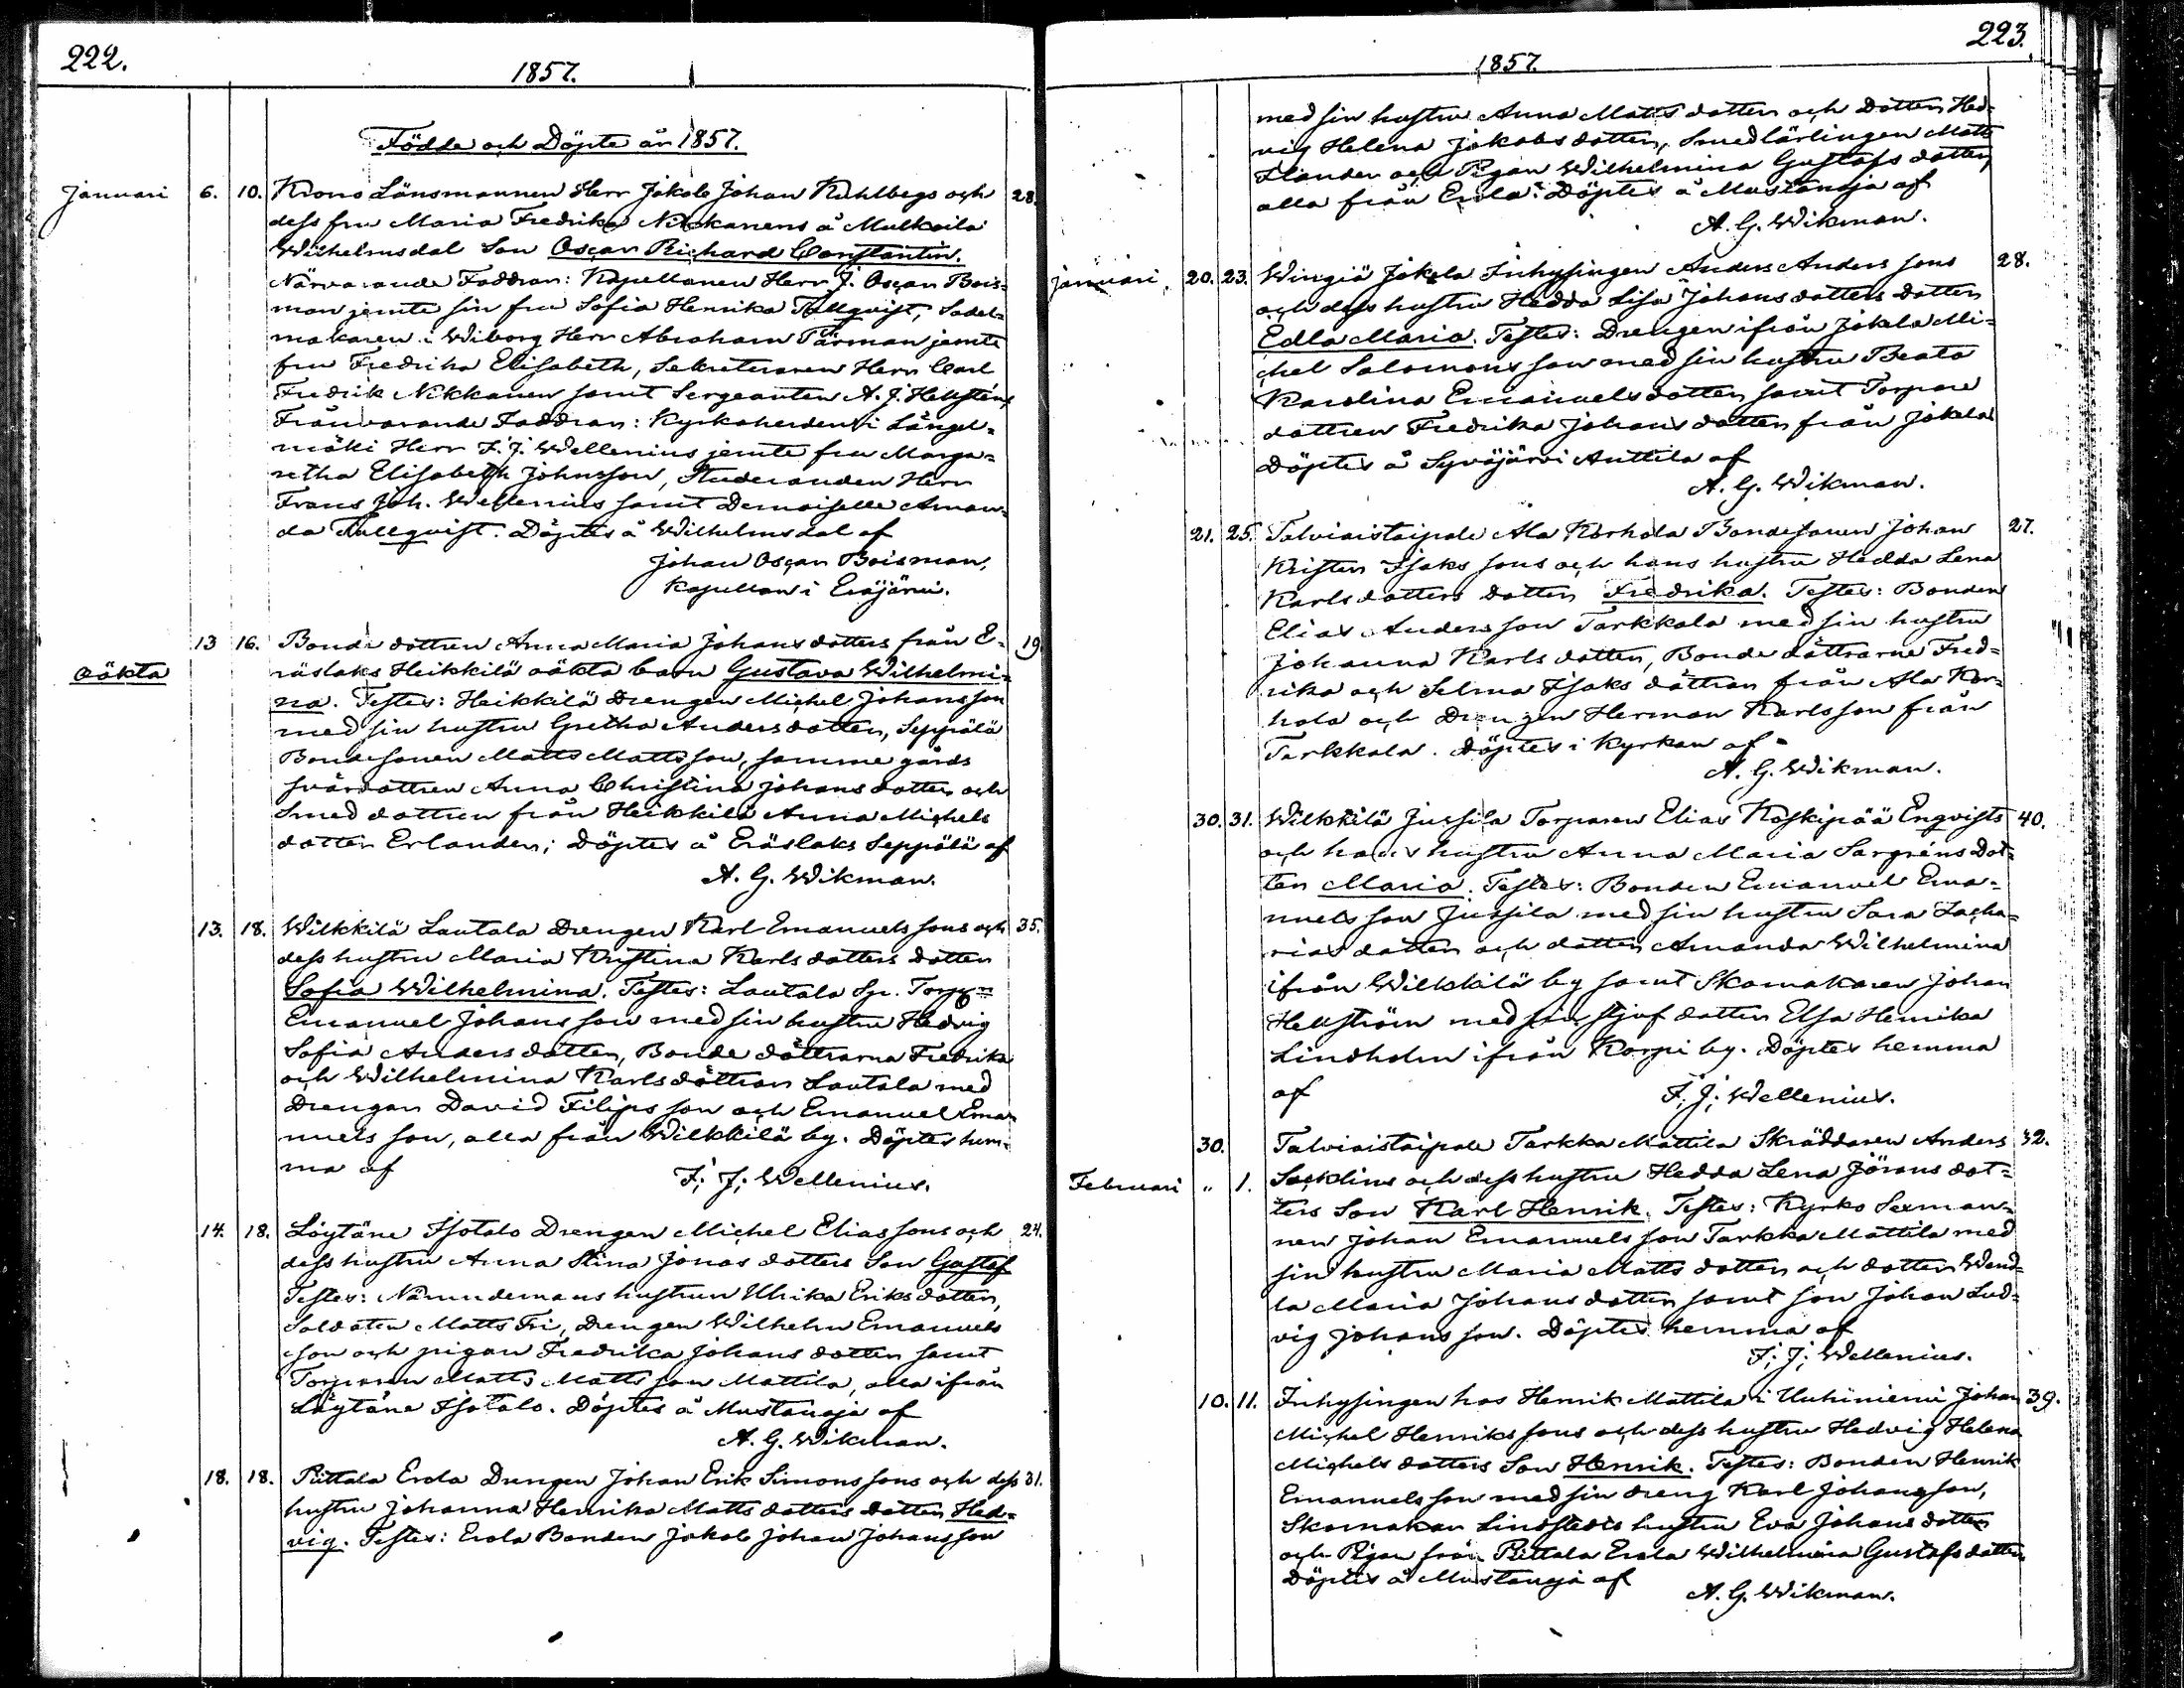 222.
1857.
Födde och Döpte år 1857.
Januari 6. 10. Krono Länsmannen Herr Jakob Johan Kuhlbergs och 28.
dess fru Maria Fredrika Nikkanens å Mulkoila
Wilhelmsdal Son Oscar Richard Constantin.
Närvarande Faddrar: Kapellanen Herr J. Oscar Bois=
man jemte sin fru Sofia Henrika Tallqvist, Sadel=
makaren i Wiborg Herr Abraham Färman jemte
fru Fredrika Elisabeth, Sekreteraren Herr Carl
Fredrik Nikkanen samt Sergeanten A. J. Hellsten,
Frånvarande Faddrar: Kyrkoherden i Längel=
mäki Herr F. J. Wellenius jemte fru Marga=
retha Elisabeth Johnsson, Studeranden Herr
Frans Joh. Wellenius samt Demoiselle Aman=
da Tallqvist. Döptes å Wilhelmsdal af
Johan Oscar Boisman,
Kapellan i Eräjärvi.
13 16. Bonde dottren Anna Maria Johans dotters från E= 19.
oäkta räslaks Heikkilä oäkta barn Gustava Wilhelmi=
na. Testes: Heikkilä Drengen Michel Johansson
med sin hustru Gretha Anders dotter, Seppälä
Bondesonen Matts Mattsson, samme gårds
svärdottren Anna Christina Johans dotter och
Smed dottren från Heikkilä Anna Michels
dotter Erlander; Döptes å Eräslaks Seppälä af
A. G. Wikman.
13. 18. Wilkkilä Lautala Drengen Karl Emanuels sons och 35.
dess hustru Maria Kristina Karls dotters dotter
Sofia Wilhelmina. Testes: Lautala Sp. Torp.
Emanuel Johans son med sin hustru Hedvig
Sofia Anders dotter, Bonde döttrarna Fredrika
och Wilhelmina Karlsdöttrar Lautala med
Drengar David Filips son och Emanuel Ema=
nuels son, alla från Wilkkilä by. Döptes hem=
ma af F. J. Wellenius.
14. 18. Löytäne Isotalo Drengen Michel Elias sons och 24.
dess hustru Anna Stina Jonas dotters Son Gustaf
Testes: Nämndemans hustrun Ulrika Eriks dotter,
Soldaten Matts Fri, Drengen Wilhelm Emanuels
son och pigan Fredrika Johans dotter samt
Torparen Matts Matts son Mattila, alla ifrån
Löytäne Isotalo. Döptes å Mustanoja af
A. G. Wikman.
18. 18. Pittala Erola Drengen Johan Erik Simons sons och dess 31.
hustru Johanna Henrika Matts dotters dotter Hed=
vig. Testes: Erola Bonden Jakob Johan Johansson
223.
1857.
med sin hustru Anna Matts dotter och dotter Hed=
vig Helena Jakobs dotter, Smedlärlingen Matts
Flander och Pigan Wilhelmina Gustafs dotter,
alla från Erola. Döptes å Mustanoja af
A. G. Wikman.
Januari, 20. 23. Wingiä Jokela Inhysingen Anders Anders sons 28.
och dess hustru Hedda Lisa Johans dotters dotter
Edla Maria. Testes: Drengen ifrån Jokela Mi=
chel Salomons son med sin hustru Beata
Karolina Emanuels dotter samt Torpare
dottren Fredrika Johans dotter från Jokela
Döptes å Syväjärvi Anttila af
A. G. Wikman.
21. 25. Talviaistaipale Ala Korhola Bondesonen Johan 27.
Kristen Isaks sons och hans hustru Hedda Lena
Karls dotters dotter Fredrika. Testes: Bonden
Elias Anders son Tarkkala med sin hustru
Johanna Karls dotter, Bonde döttrarne Fred=
rika och Selma Isaks döttrar från Ala Kor=
hola och Drengen Herman Karlsson från
Tarkkala. Döptes i Kyrkan af
A. G. Wikman.
30. 31. Wilkkilä Jussila Torparen Elias Koskipää Enqvists 40.
och hans hustru Anna Maria Sargrens Dot=
ter Maria. Testes: Bonden Emanuel Ema=
nuels son Jussila med sin hustru Sara Zacha=
rias dotter och dotter Amanda Wilhelmina
ifrån Wilkkilä by samt Skomakaren Johan
Hellström med sin stjuf dotter Elsa Henrika
Lindholm ifrån Korpi by. Döptes hemma
af F. J. Wellenius.
30. Talviaistaipale Tarkka Mattila Skräddaren Anders 32.
Februari " 1. Säcklins och dess hustru Hedda Lena Jörans dot=
ters Son Karl Henrik. Testes: Kyrko Sexman=
nen Johan Emanuels son Tarkka Mattila med
sin hustru Maria Matts dotter och dotter Wend=
la Maria Johans dotter samt son Johan Lud=
vig Johans son. Döptes hemma af
F. J. Wellenius.
10. 11. Inhysingen hos Henrik Mattila i Uuhiniemi Johan 39.
Michel Henriks sons och dess hustru Hedvig Helena
Michels dotters Son Henrik. Testes: Bonden Henrik
Emanuels son med sin dreng Karl Johansson,
Skomakar Lindstedts hustru Eva Johans dotter
och Pigan från Pittala Erola Wilhelmina Gustafs dotter
Döptes å Mustanoja af
A. G. Wikman.